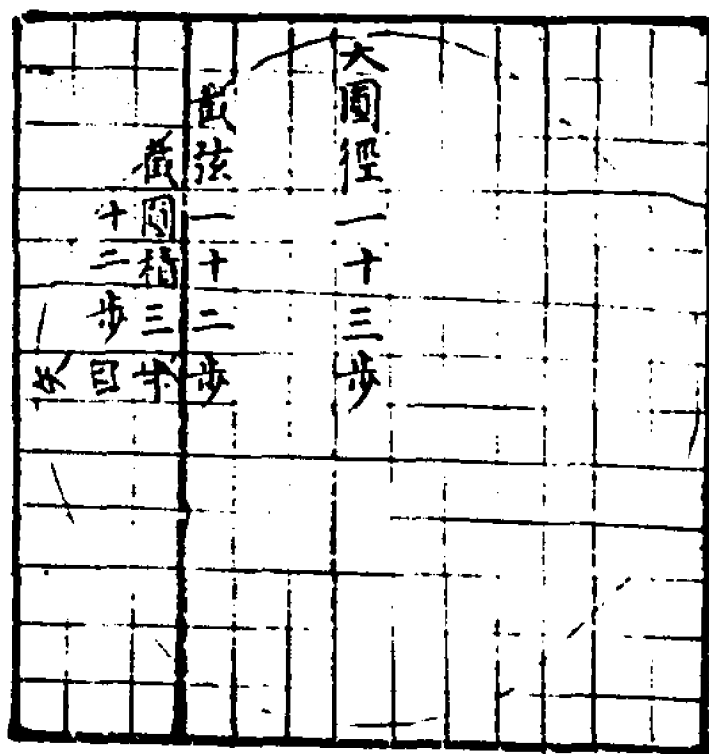 大圓徑一十三步
截弦一十二步
截圓積三
十二步
矢四步